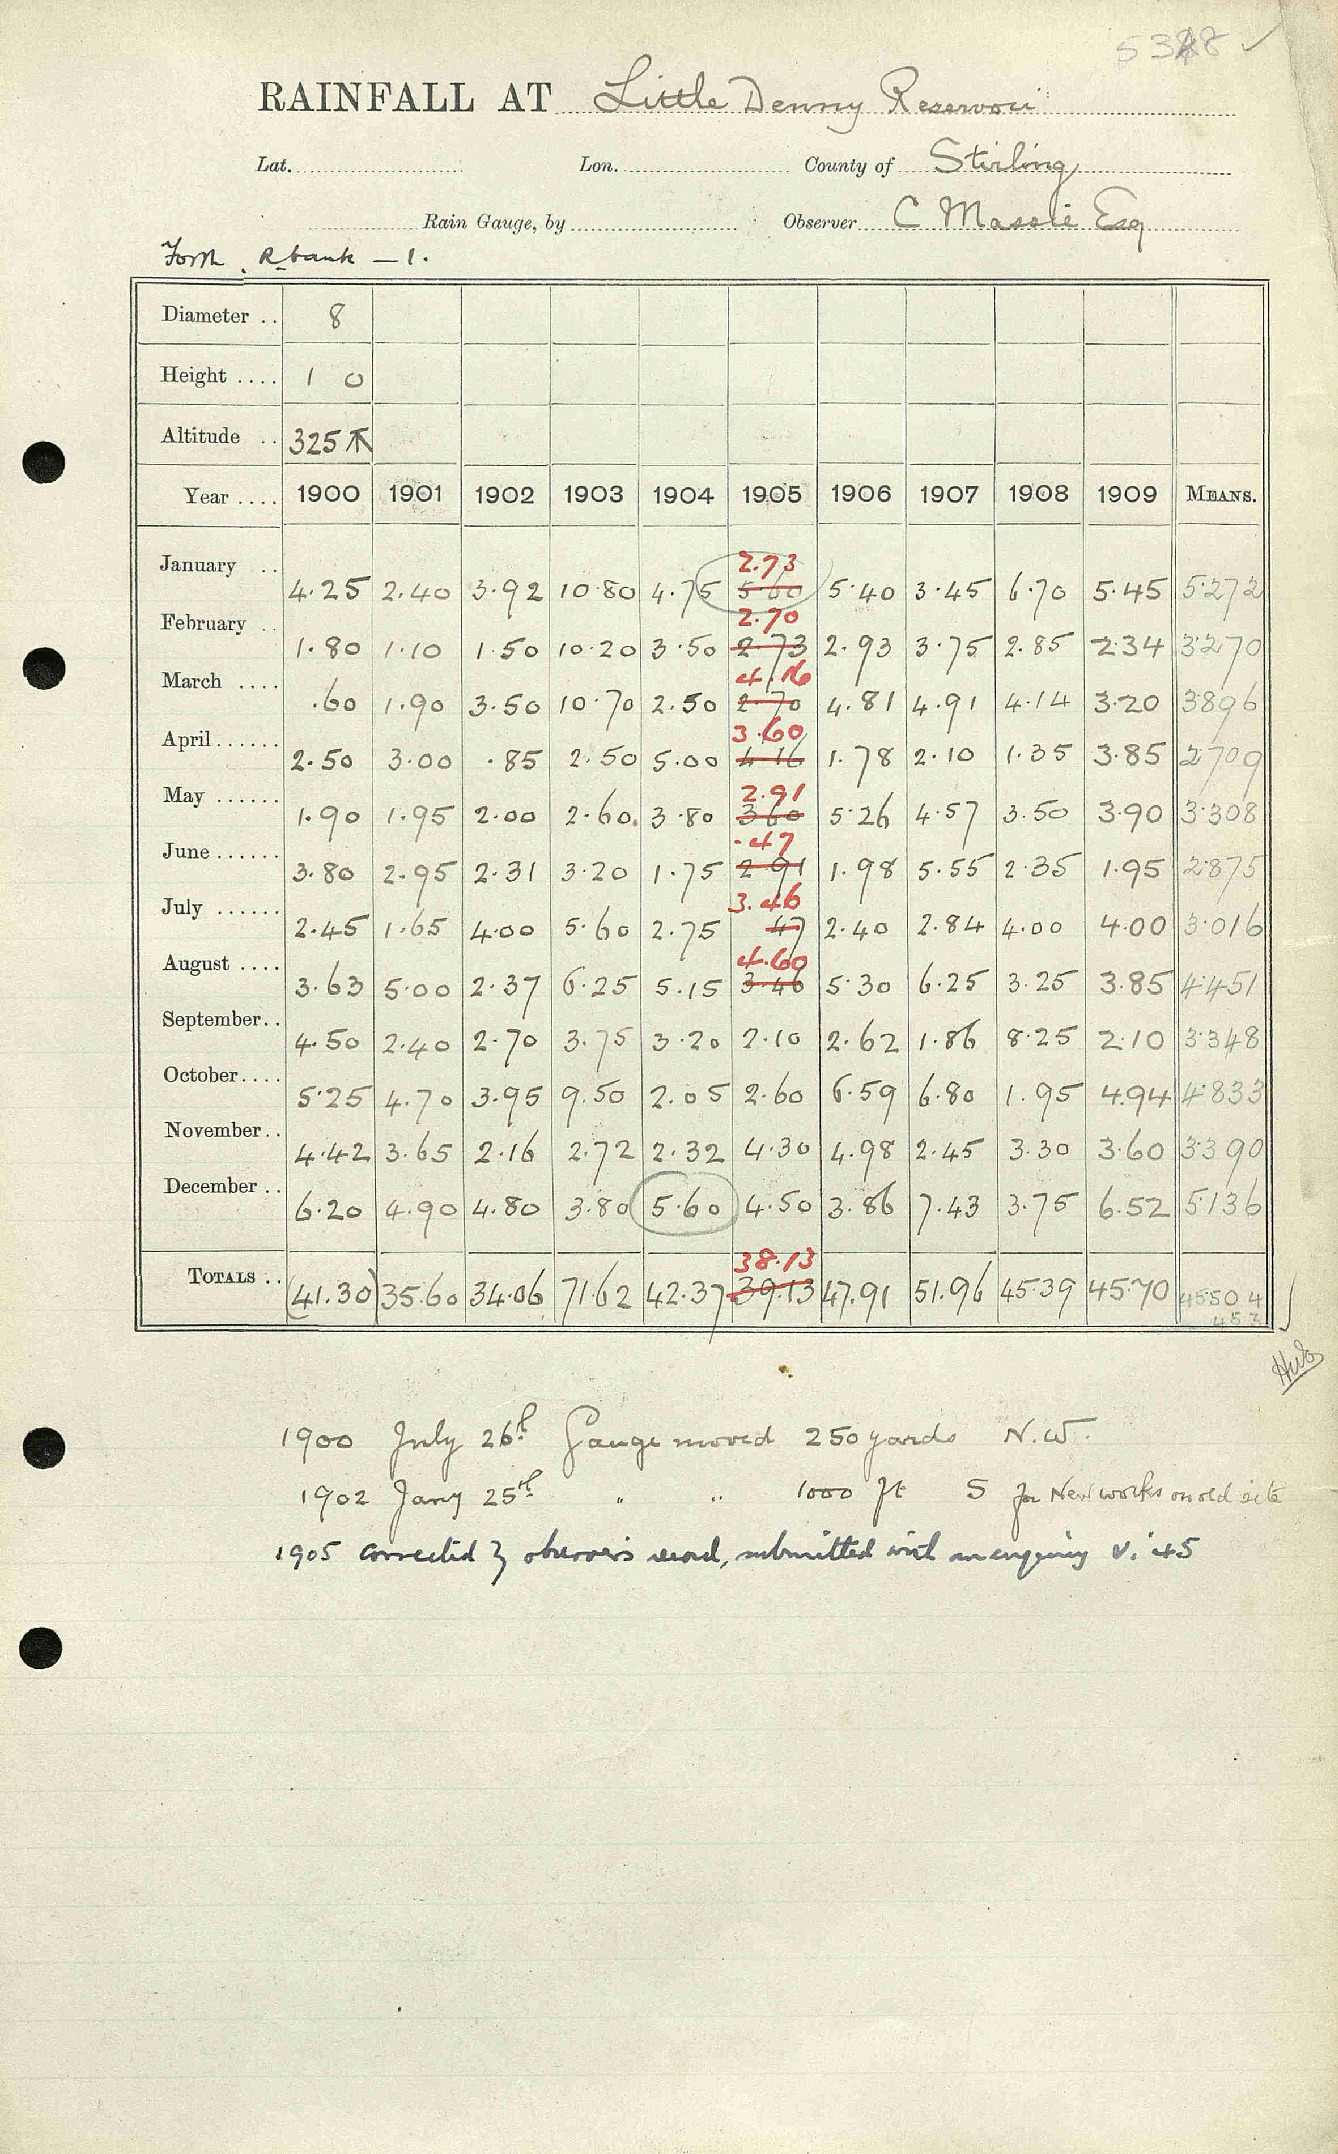 5388 ✓
RAINFALL AT Little Denny Reservoir
Lat. Lon. County of Stirling
Rain Gauge, by Observer C Massie Esq
Forth. R. bank — 1.
Diameter .. 8
Height .... 1 0
Altitude .. 325 ft
Year .... 1900 1901 1902 1903 1904 1905 1906 1907 1908 1909 MEANS.
2.73
January .. 4.25 2.40 3.92 10.80 4.75 5.60 5.40 3.45 6.70 5.45 5.272
2.70
February .. 1.80 1.10 1.50 10.20 3.50 2.73 2.93 3.75 2.85 2.34 3.270
4.16
March .... .60 1.90 3.50 10.70 2.50 2.70 4.81 4.91 4.14 3.20 3896
3.60
April...... 2.50 3.00 .85 2.50 5.00 4.16 1.78 2.10 1.35 3.85 2709
2.91
May ...... 1.90 1.95 2.00 2.60 3.80 3.60 5.26 4.57 3.50 3.90 3.308
.47
June...... 3.80 2.95 2.31 3.20 1.75 2.91 1.98 5.55 2.35 1.95 2.875
3.46
July ...... 2.45 1.65 4.00 5.60 2.75 47 2.40 2.84 4.00 4.00 3.016
4.60
August .... 3.63 5.00 2.37 6.25 5.15 3.46 5.30 6.25 3.25 3.85 4.451
September.. 4.50 2.40 2.70 3.75 3.20 2.10 2.62 1.86 8.25 2.10 3.348
October.... 5.25 4.70 3.95 9.50 2.05 2.60 6.59 6.80 1.95 4.94 4.833
November.. 4.42 3.65 2.16 2.72 2.32 4.30 4.98 2.45 3.30 3.60 3390
December .. 6.20 4.90 4.80 3.80 5.60 4.50 3.86 7.43 3.75 6.52 5136
38.13
TOTALS .. (41.30) 35.60 34.06 71.62 42.37 39.13 47.91 51.96 45.39 45.70 45.504
453
1900 July 26th Gauge moved 250 yards N.W.
1902 Jany 25th " " 1000 ft S for New works on old site
1905 corrected by observer's record, submitted with an enquiry V. '45